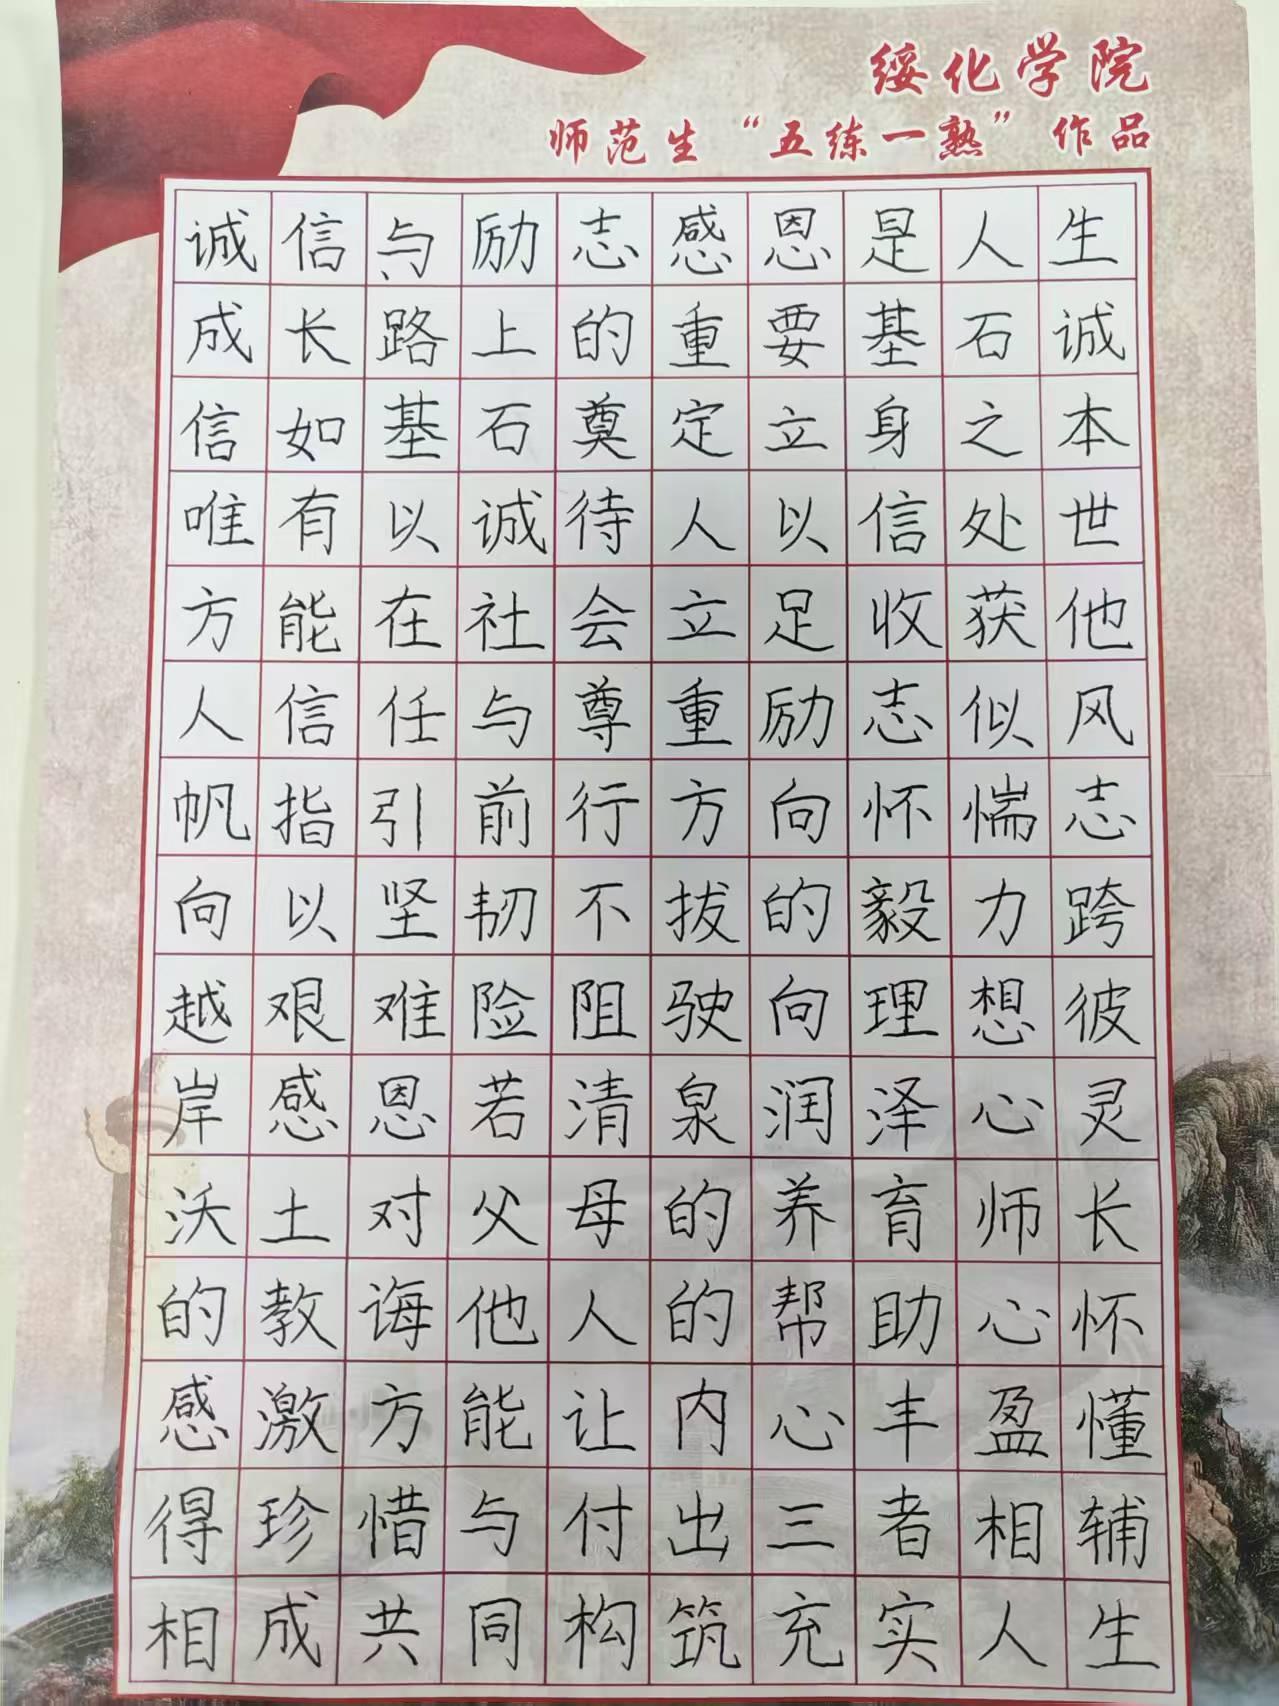 绥化学院
师范生“五练一熟”作品
诚信与励志感恩是人生
成长路上的重要基石诚
信如基石奠定立身之本
唯有以诚待人以信处世
方能在社会立足收获他
人信任与尊重励志似风
帆指引前行方向怀惴志
向以坚韧不拔的毅力跨
越艰难险阻驶向理想彼
岸感恩若清泉润泽心灵
沃土对父母的养育师长
的教诲他人的帮助心怀
感激方能让内心丰盈懂
得珍惜与付出三者相辅
相成共同构筑充实人生